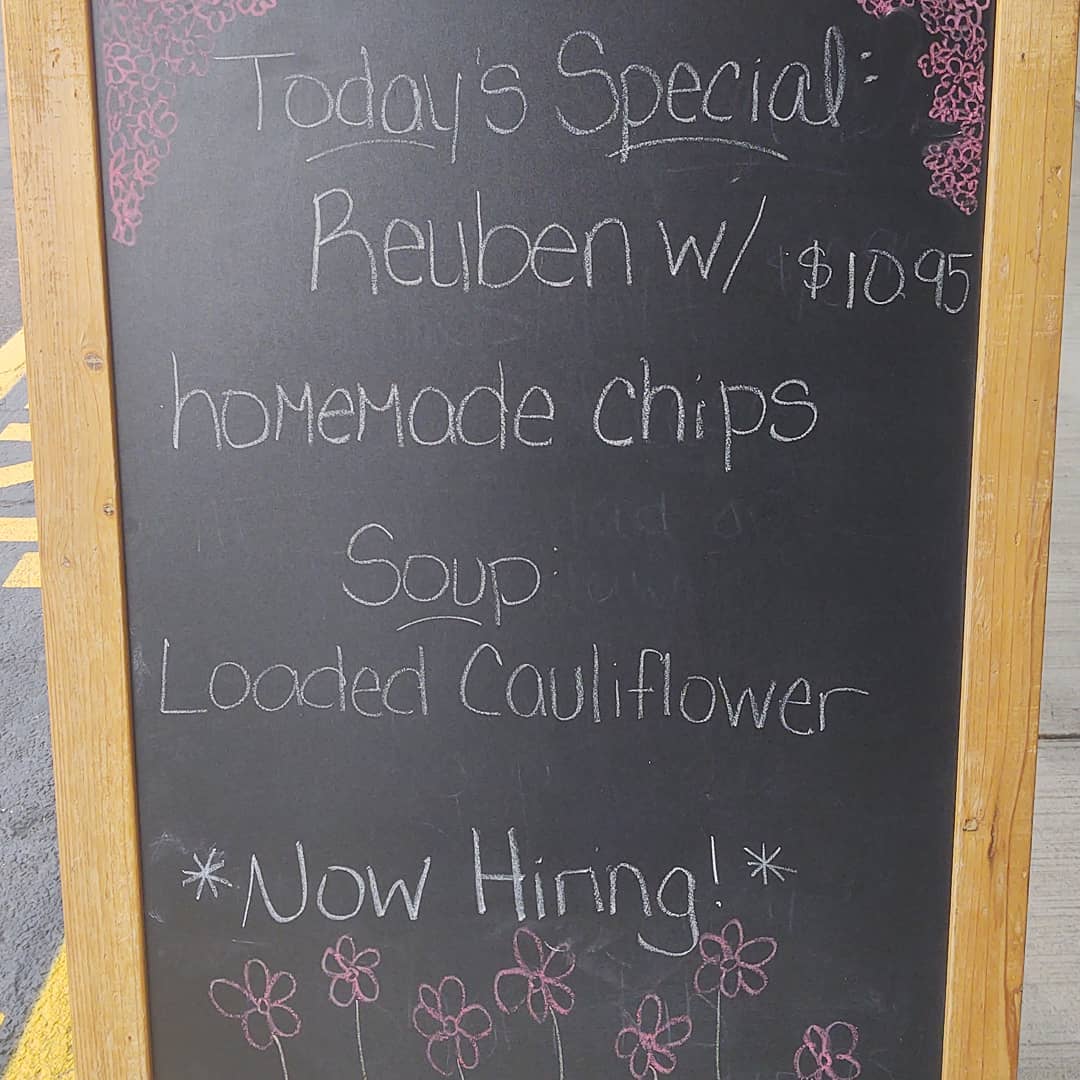 Today's Special:
Reuben w/ $10.95
homemade chips
Soup:
Loaded Cauliflower
*Now Hiring!*